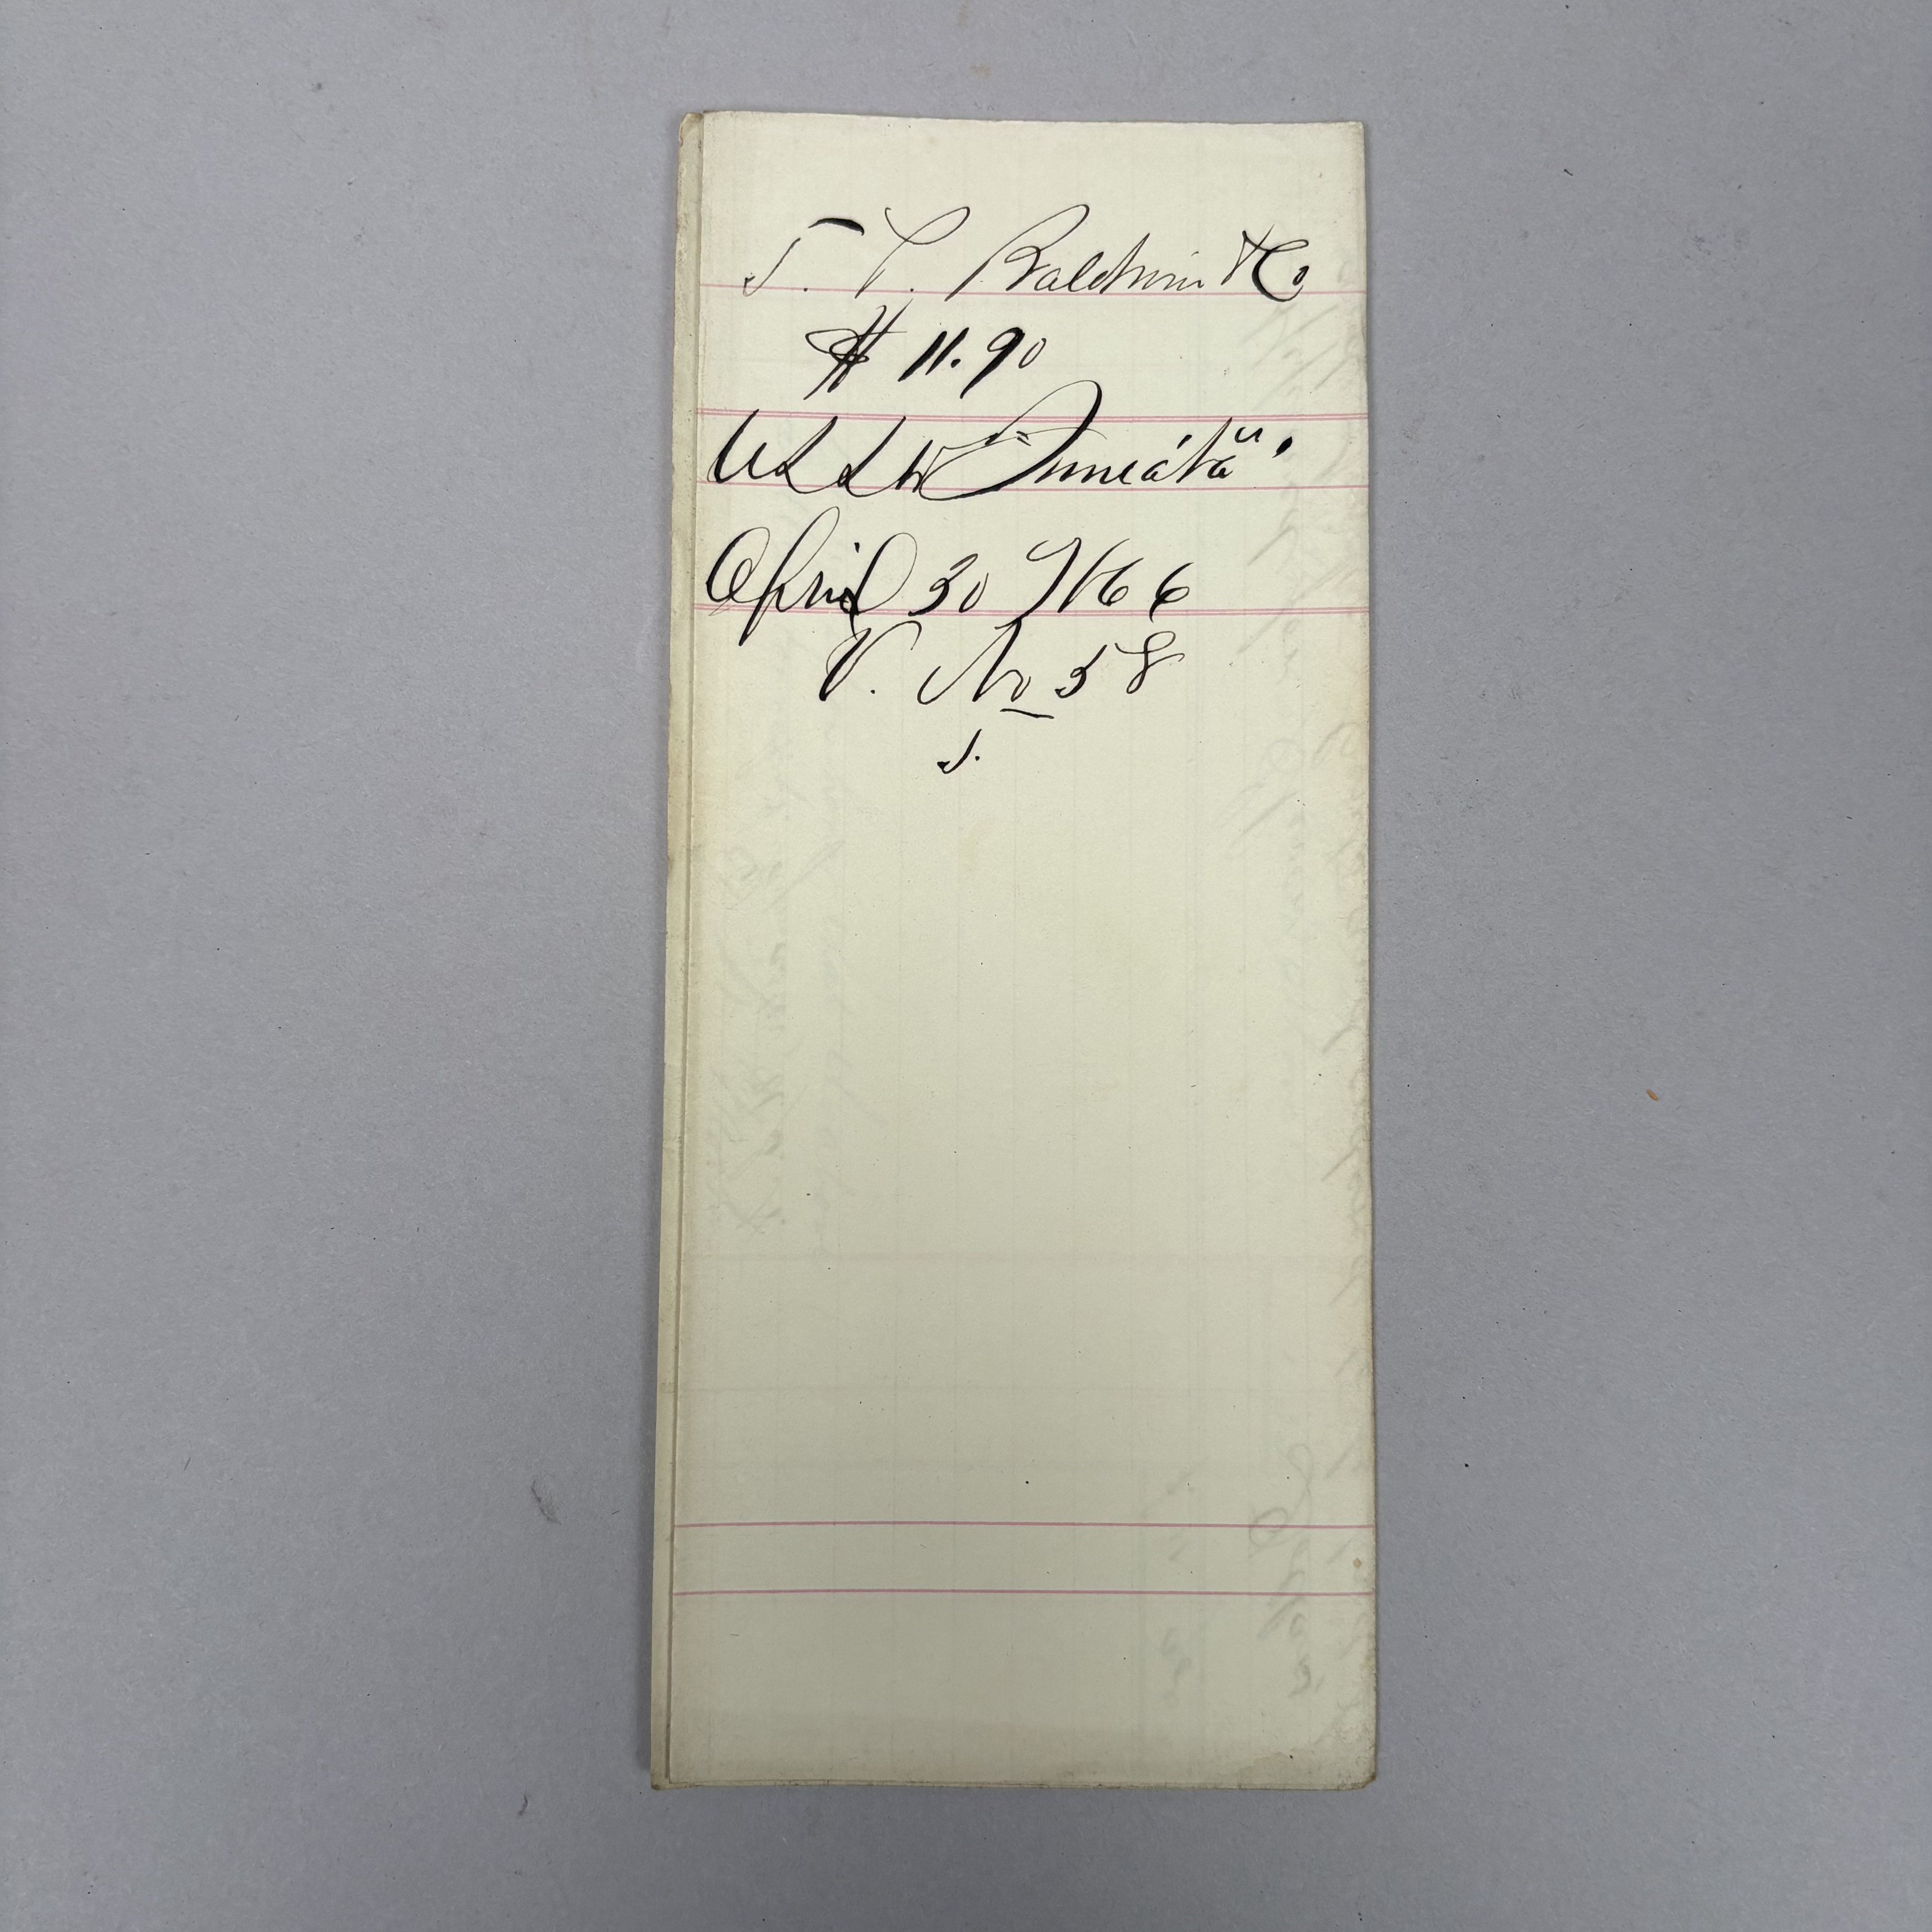 Baldwin & Co
$ 11.90
U S S "Juniata".
April 30 1866
V. No 58